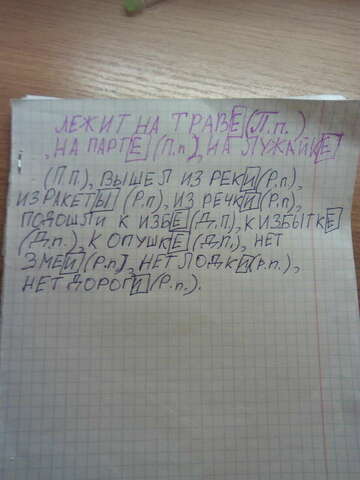 ЛЕЖИТ НА ТРАВЕ (П.п.)
, НА ПАРТЕ (П.п), НА ЛУЖАЙКЕ
(П.П.), ВЫШЕЛ ИЗ РЕКИ (Р.п),
ИЗ РАКЕТЫ (Р.п), ИЗ РЕЧКИ (Р.п),
ПОДОШЛИ К ИЗБЕ (Д.П), К ИЗБЫТКЕ
(Д.п.), К ОПУШКЕ (Д.П.), НЕТ
ЗМЕИ (Р.п), НЕТ ЛОДКИ (Р.п.),
НЕТ ДОРОГИ (Р.п.).